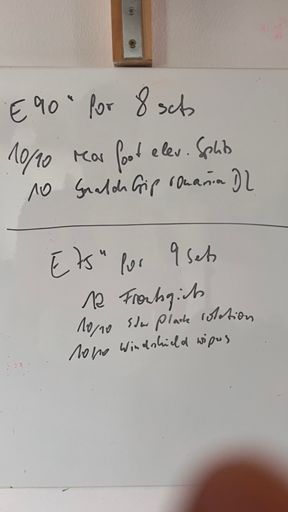 E90" for 8 sets
10/10 rear foot elev. Splits
10 Snatch Grip romanian DL
E75" for 9 sets
12 Frontsquats
10/10 side plank rotation
10/10 windshield wipers